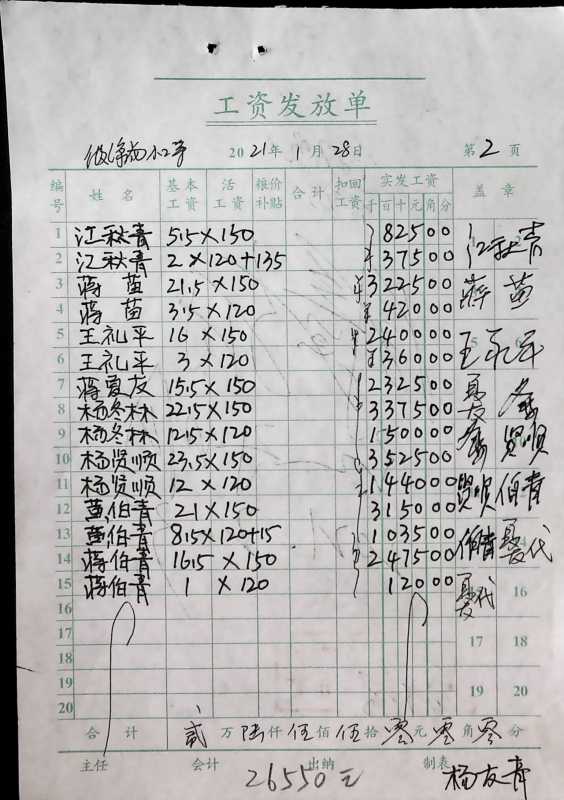 工资发放单
2021年1月28日 第2页
编号 姓名 基本工资 活工资 粮价补贴 合计 扣回工资 实发工资 千百十元角分 盖章
1 江秋青 5.5×150 82500 江秋青
2 江秋青 2×120+135 37500
3 蒋苗 21.5×150 ¥322500 蒋苗
4 蒋苗 3.5×120 ¥42000
5 王礼平 16×150 ¥240000 王礼平
6 王礼平 3×120 ¥36000
7 蒋爱友 15.5×150 232500
8 杨冬林 22.5×150 337500
9 杨冬林 12.5×120 150000
10 杨贤顺 23.5×150 352500 贤顺
11 杨贤顺 12×120 144000 贤顺 伯青
12 伯青 21×150 315000
13 伯青 8.5×120+15 103500 伯青 代
14 蒋伯青 16.5×150 247500
15 蒋伯青 1×120 12000 代
16 16
17 17 18
18
19 19 20
20
合计 贰万陆仟伍佰伍拾零元零角零分
主任 会计 出纳 制表 杨友青
26550元